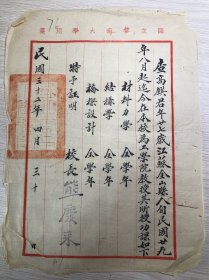 國立雲南大學用箋
查高騏君年卅七歲江蘇金山縣人自民國廿九
年八月起迄今在本校為工學院教授其所授功課如下
材料力學 全學年
結構學 全學年
橋樑設計 全學年
特予証明
校長 熊慶來
民國三十五年四月三十日